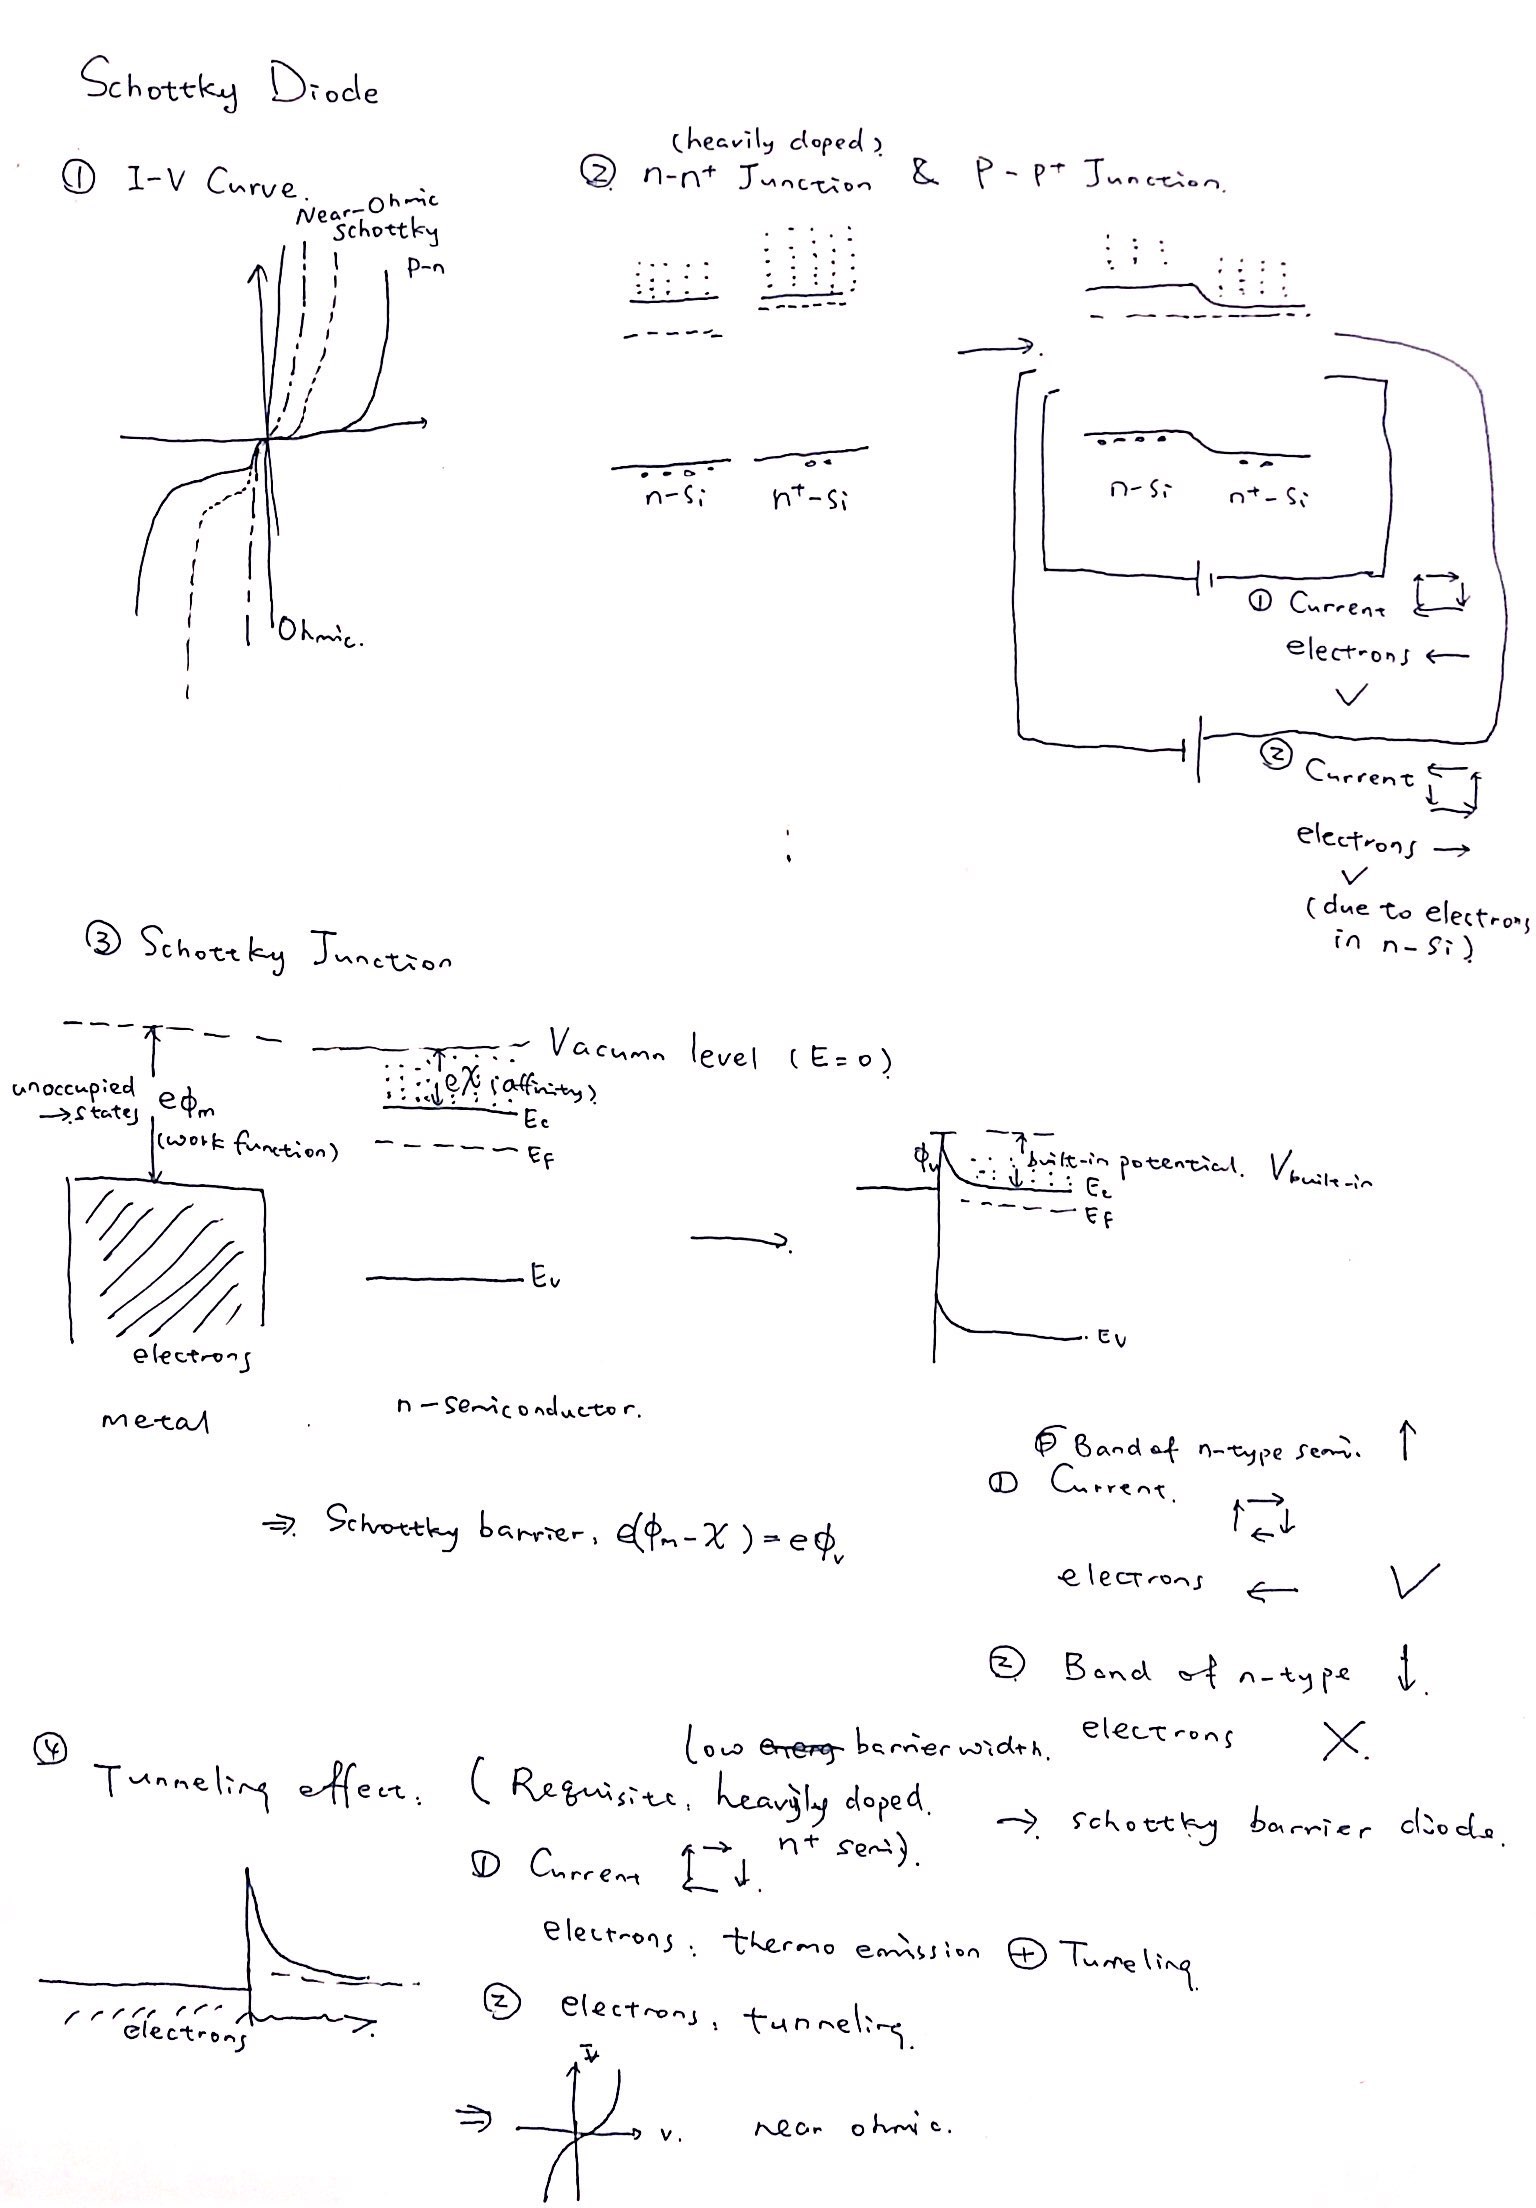 Schottky Diode
① I-V Curve.
Near-Ohmic
Schottky
p-n
Ohmic.
(heavily doped)
② n-n+ Junction & P-P+ Junction.
n-Si n+-Si
n-Si n+-Si
① Current
electrons ←
✓
② Current
electrons →
✓
(due to electrons
in n-Si)
③ Schottky Junction
Vacumn level (E=0)
unoccupied
→ states
eϕm
(work function)
eχ (affinity)
Ec
EF
Ev
electrons
metal
n-semiconductor.
built-in potential. Vbuilt-in
Ec
EF
Ev
⇒ Schrottky barrier, e(ϕm-χ) = eϕv
Band of n-type semi. ↑
① Current.
electrons ← ✓
② Band of n-type ↓.
electrons X.
→ schottky barrier diode.
④ Tunneling effect. (Requisite, heavily doped.
low barrier width.
n+ semi).
① Current
electrons: thermo emission ⊕ Tunneling
② electrons, tunneling.
electrons
I
V.
⇒ near ohmic.